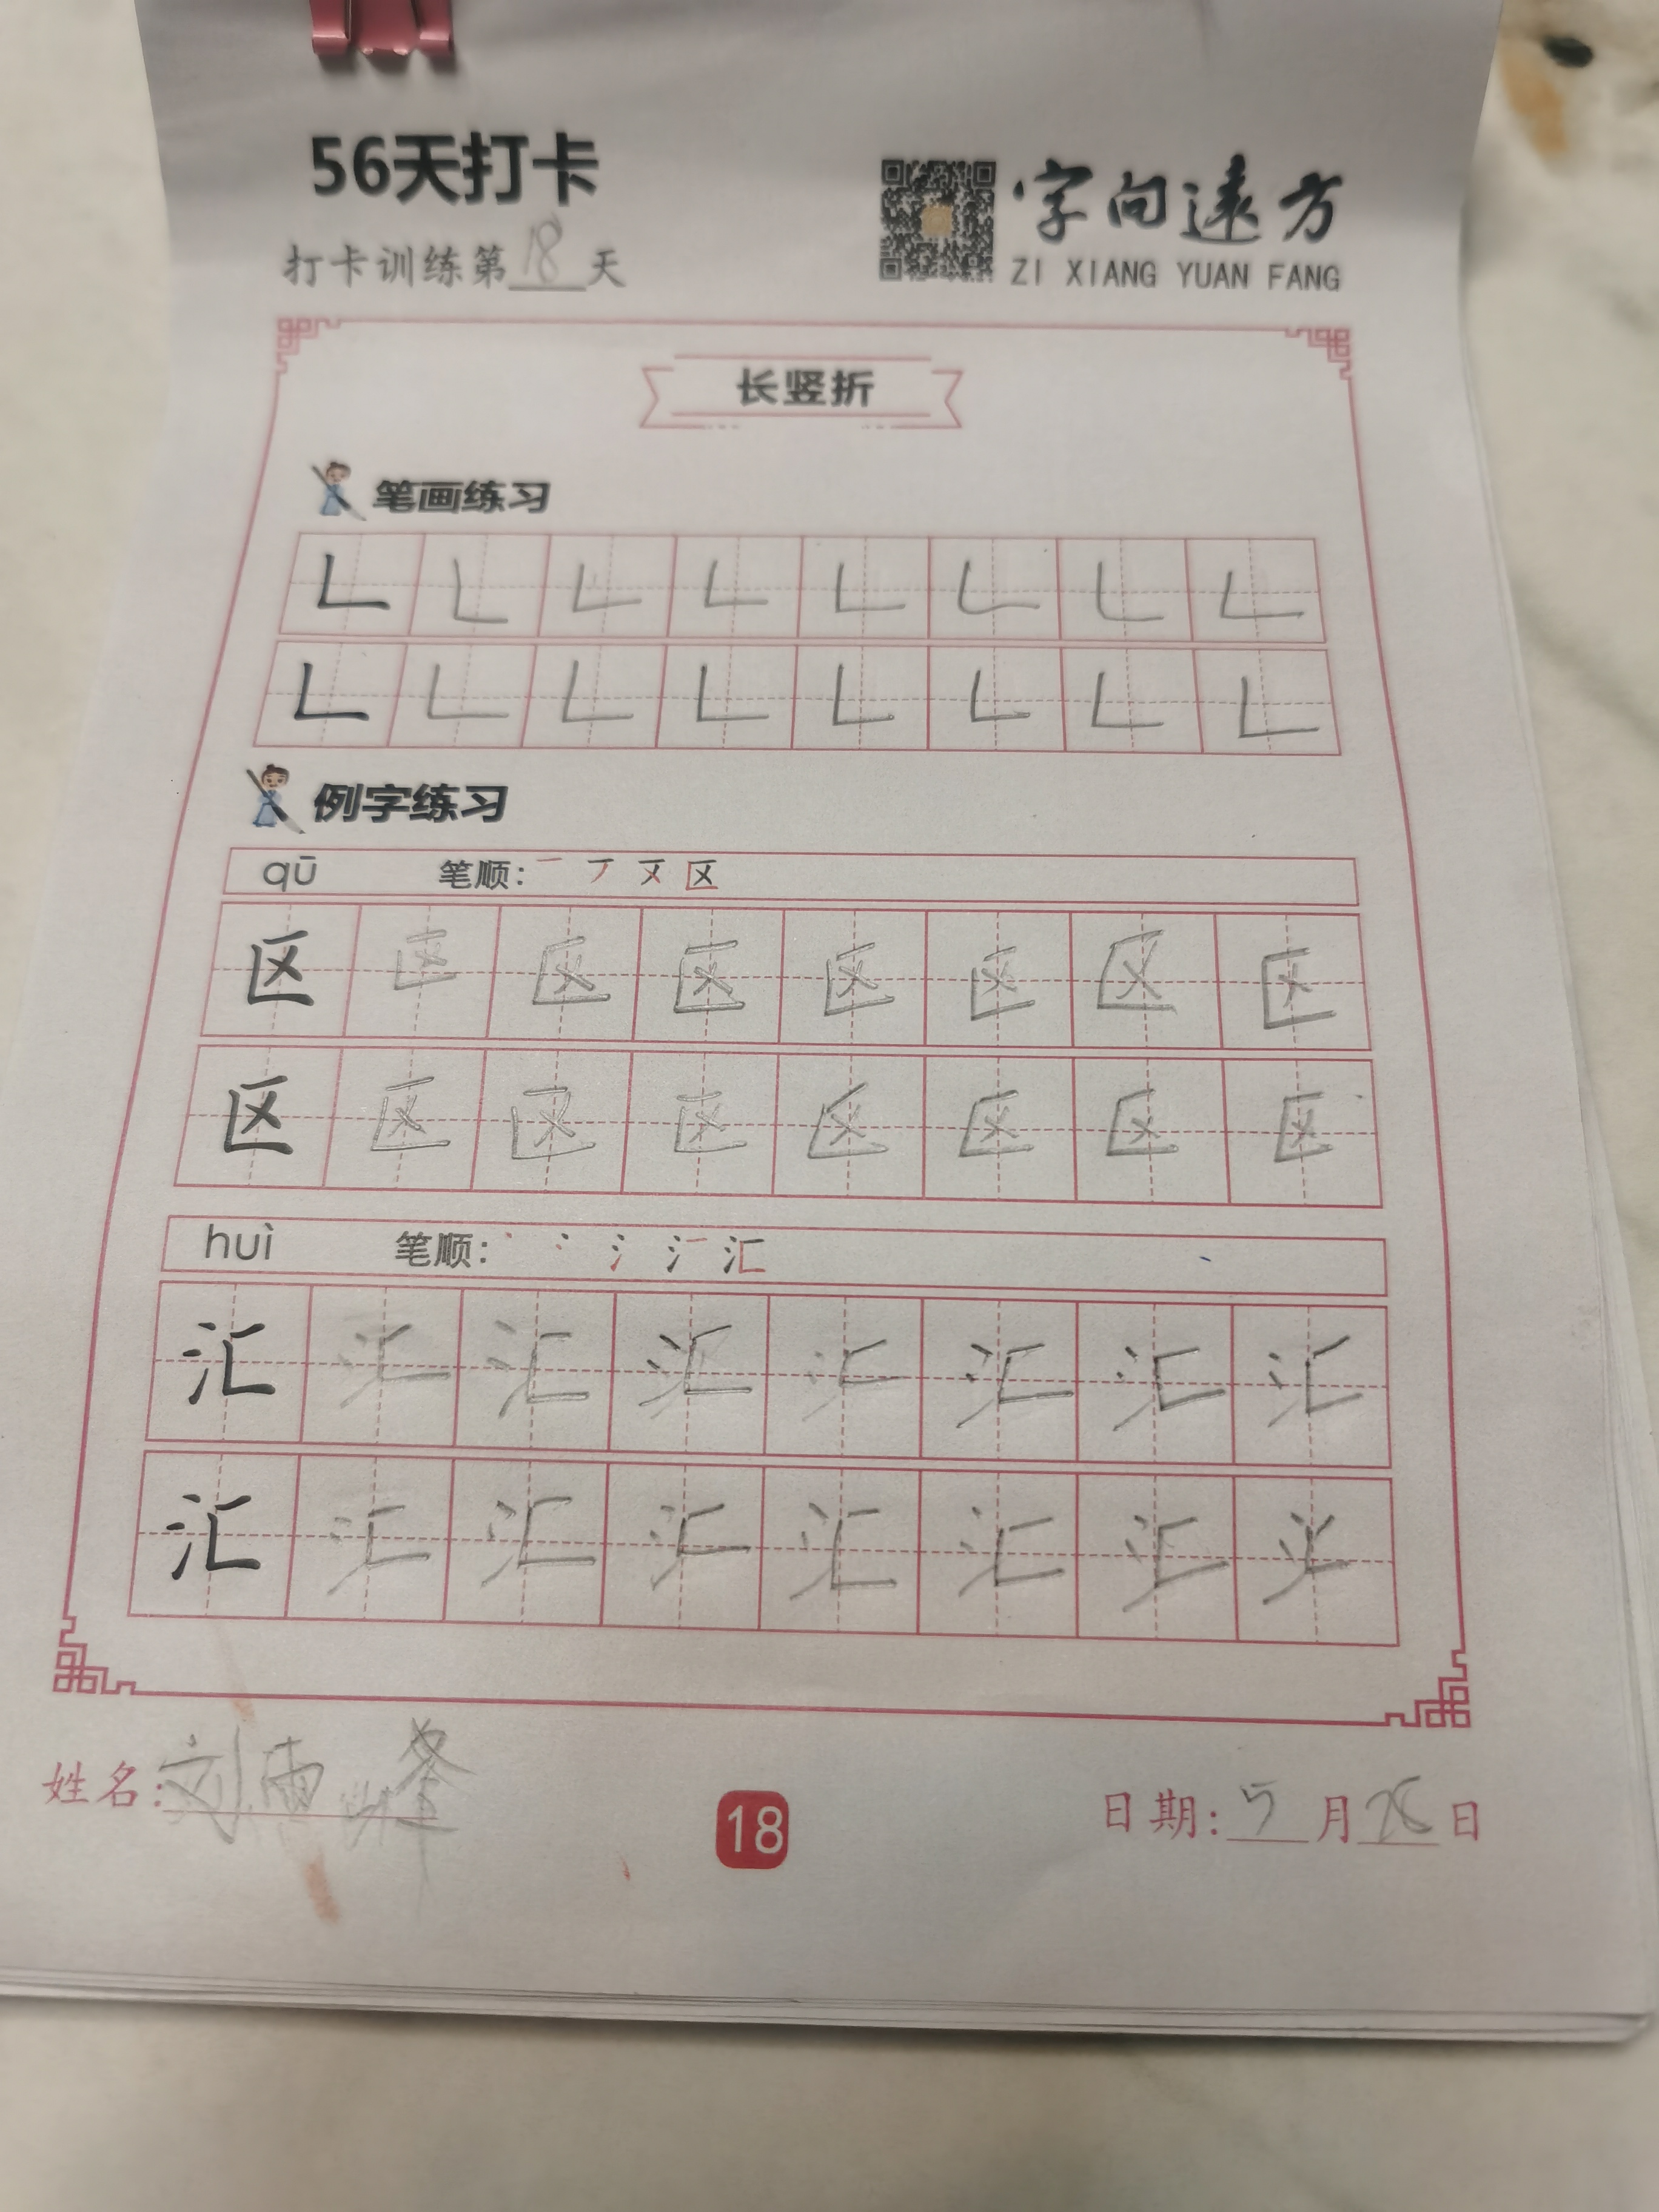 56天打卡
字向遠方
打卡训练第18天
ZI XIANG YUAN FANG
长竖折
笔画练习
𠃊 𠃊 𠃊 𠃊 𠃊 𠃊 𠃊 𠃊
𠃊 𠃊 𠃊 𠃊 𠃊 𠃊 𠃊 𠃊
例字练习
qū 笔顺: 区
区 区 区 区 区 区 区 区
区 区 区 区 区 区 区 区
huì 笔顺: 汇
汇 汇 汇 汇 汇 汇 汇 汇
汇 汇 汇 汇 汇 汇 汇 汇
姓名:刘雨峰
18
日期:5月28日